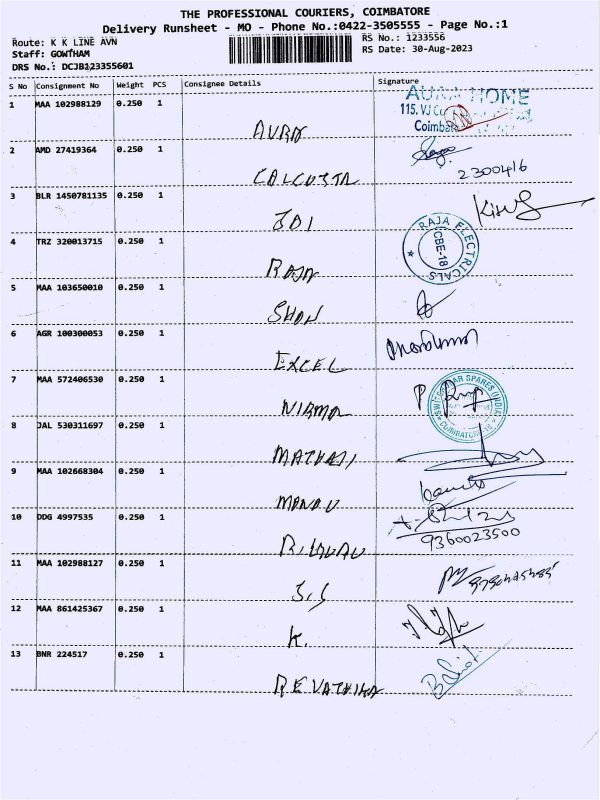 THE PROFESSIONAL COURIERS, COIMBATORE
Delivery Runsheet - MO - Phone No.:0422-3505555 - Page No.:1
Route: K K LINE AVN
RS No.: 1233556
Staff: GOWTHAM
RS Date: 30-Aug-2023
DRS No.: DCJB123355601
S No Consignment No Weight PCS Consignee Details Signature
1 MAA 102988129 0.250 1
AURA HOME
115. VJ
Coimba
AURA
2 AMD 27419364 0.250 1
CALCUTTA 2300416
3 BLR 1450781135 0.250 1
JDI
4 TRZ 320013715 0.250 1
RAJA ELECTRICALS
CBE-18
RAJA
5 MAA 103650010 0.250 1
SHAN
6 AGR 100300053 0.250 1
EXCEL
7 MAA 572406530 0.250 1
SPARES (INDIA)
COIMBATORE-18
NIRMA
8 JAL 530311697 0.250 1
MATHAJI
9 MAA 102668304 0.250 1
10 DDG 4997535 0.250 1
9360023500
11 MAA 102988127 0.250 1
S.S
12 MAA 861425367 0.250 1
K.
13 BNR 224517 0.250 1
REVATHIKA